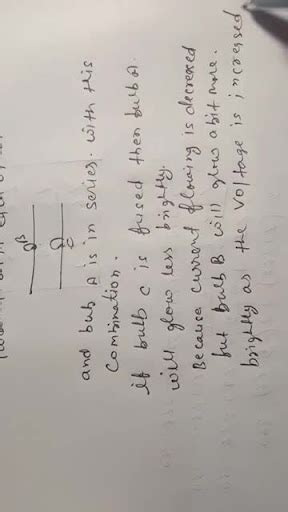 B
C
and bub A is in series. with this
Combination.
if bulb C is fused then bulb A.
will glow less brightly.
Because current flowing is decreased
but bulb B will glow a bit more.
brightly as the voltage is increased